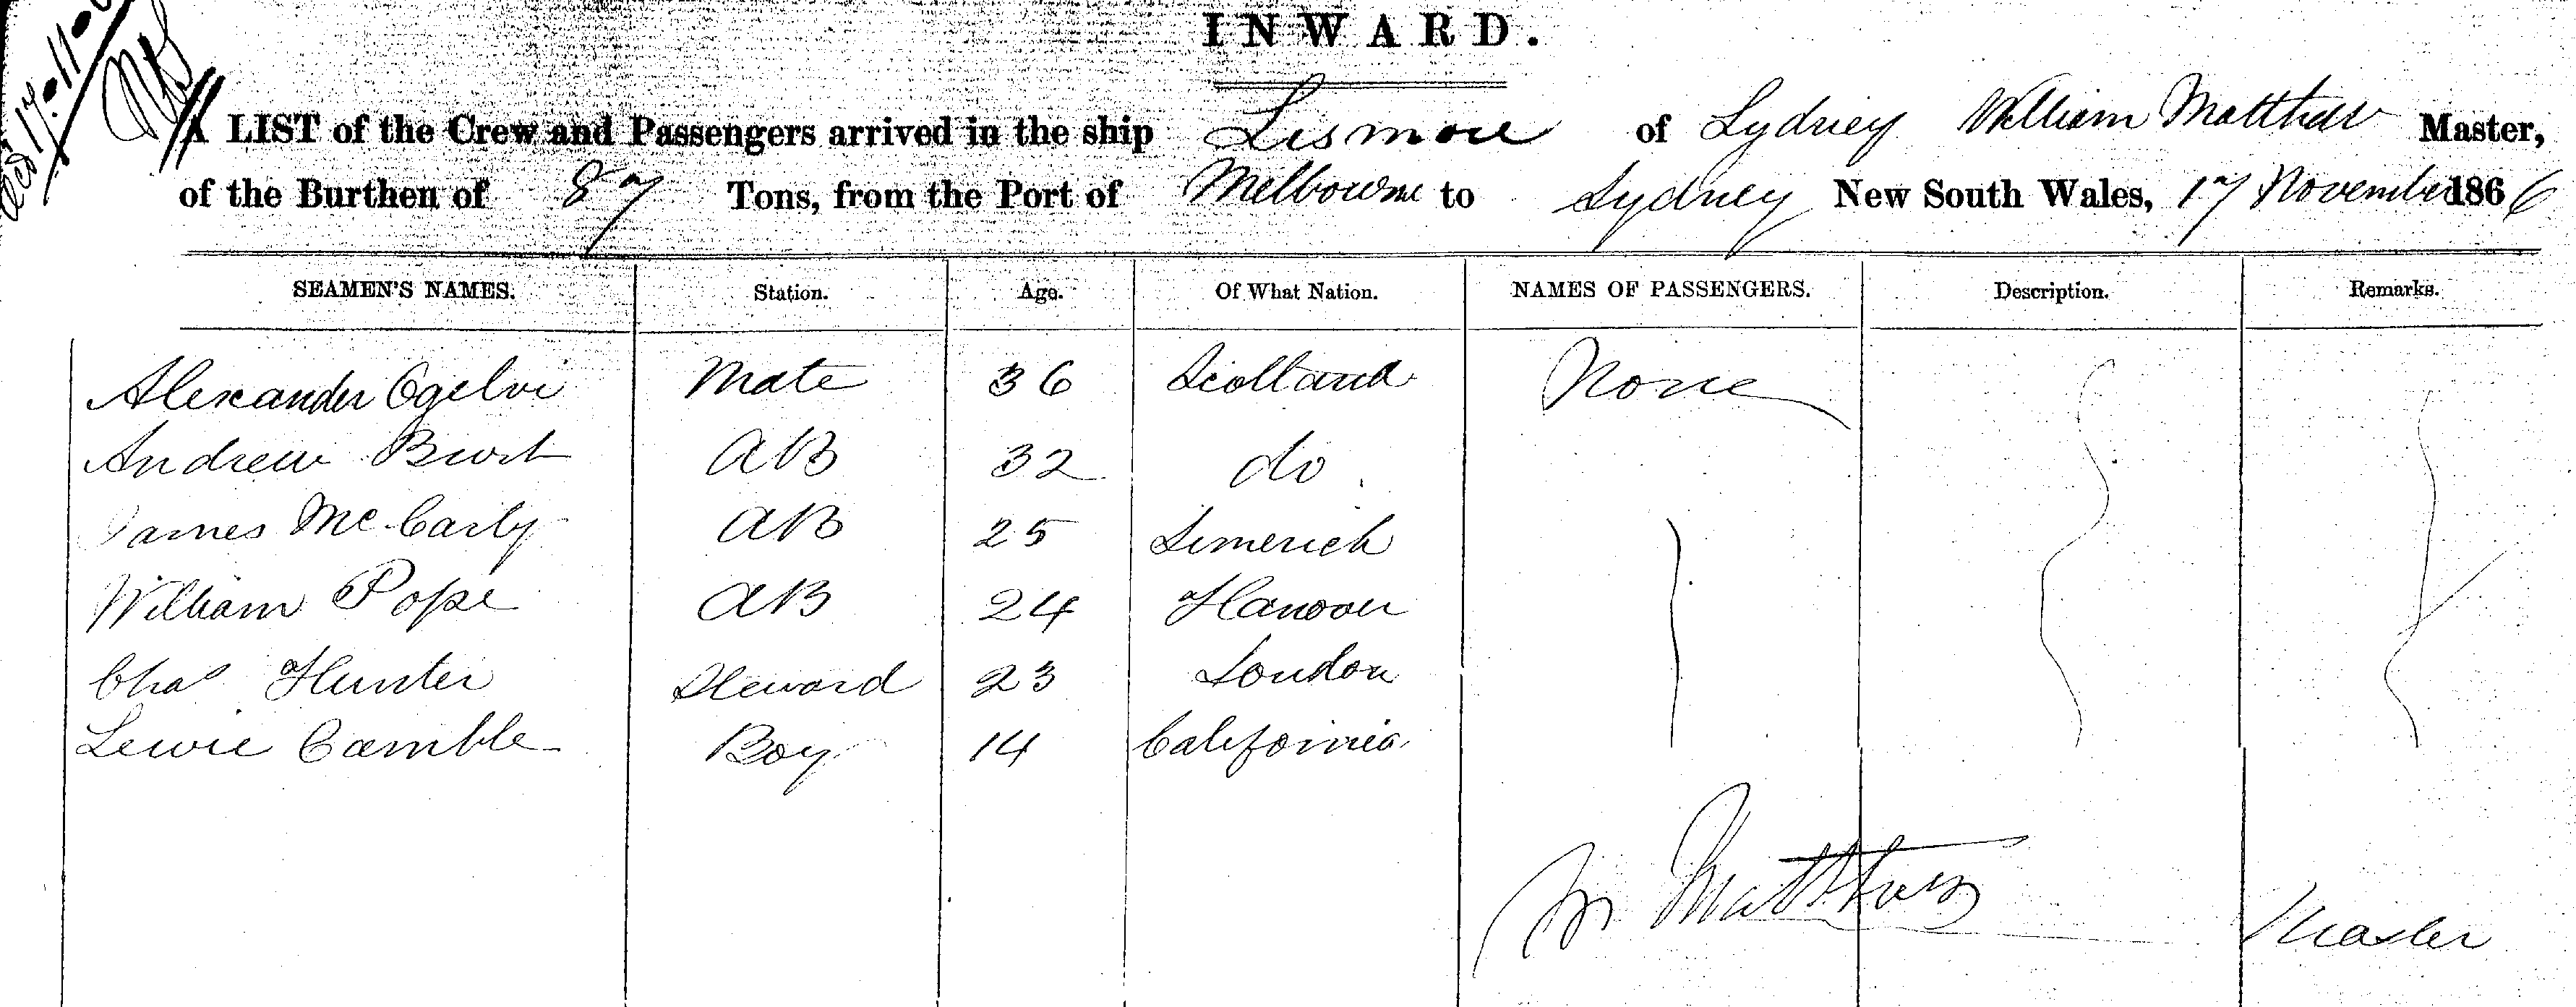 INWARD.
A LIST of the Crew and Passengers arrived in the ship Lismore of Sydney William Matthew Master,
of the Burthen of 87 Tons, from the Port of Melbourne to Sydney New South Wales, 17 November 1866
SEAMEN'S NAMES. Station. Age. Of What Nation. NAMES OF PASSENGERS. Description. Remarks.
Alexander Ogelvi Mate 36 Scotland None
Andrew Burt AB 32 do
James McCarty AB 25 Limerick
William Pope AB 24 Hanover
Chas Hunter Steward 23 London
Lewie Camble Boy 14 California
Wm Matthews Master